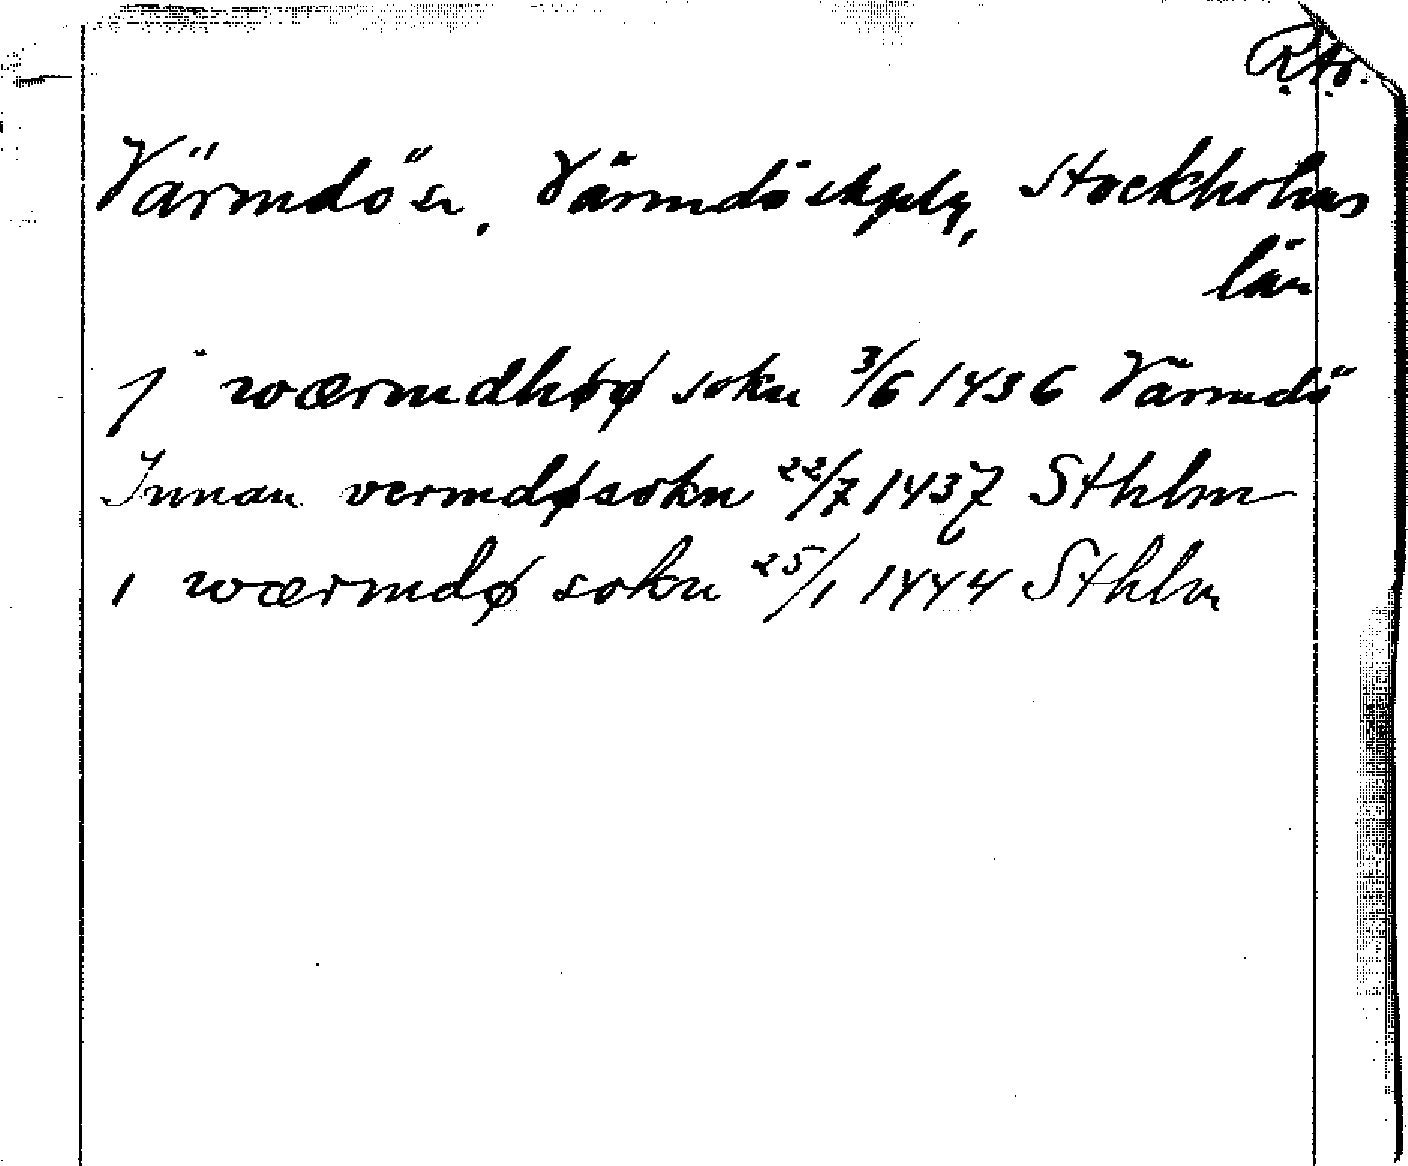 RAp.
Värmdö sn, Värmdö skplg, Stockholms
län
j wærmdhøø sokn 3/6 1436 Värmdö
Innan vermdøsokn 22/7 1437 Sthlm
i wærmdø sokn 25/1 1444 Sthlm